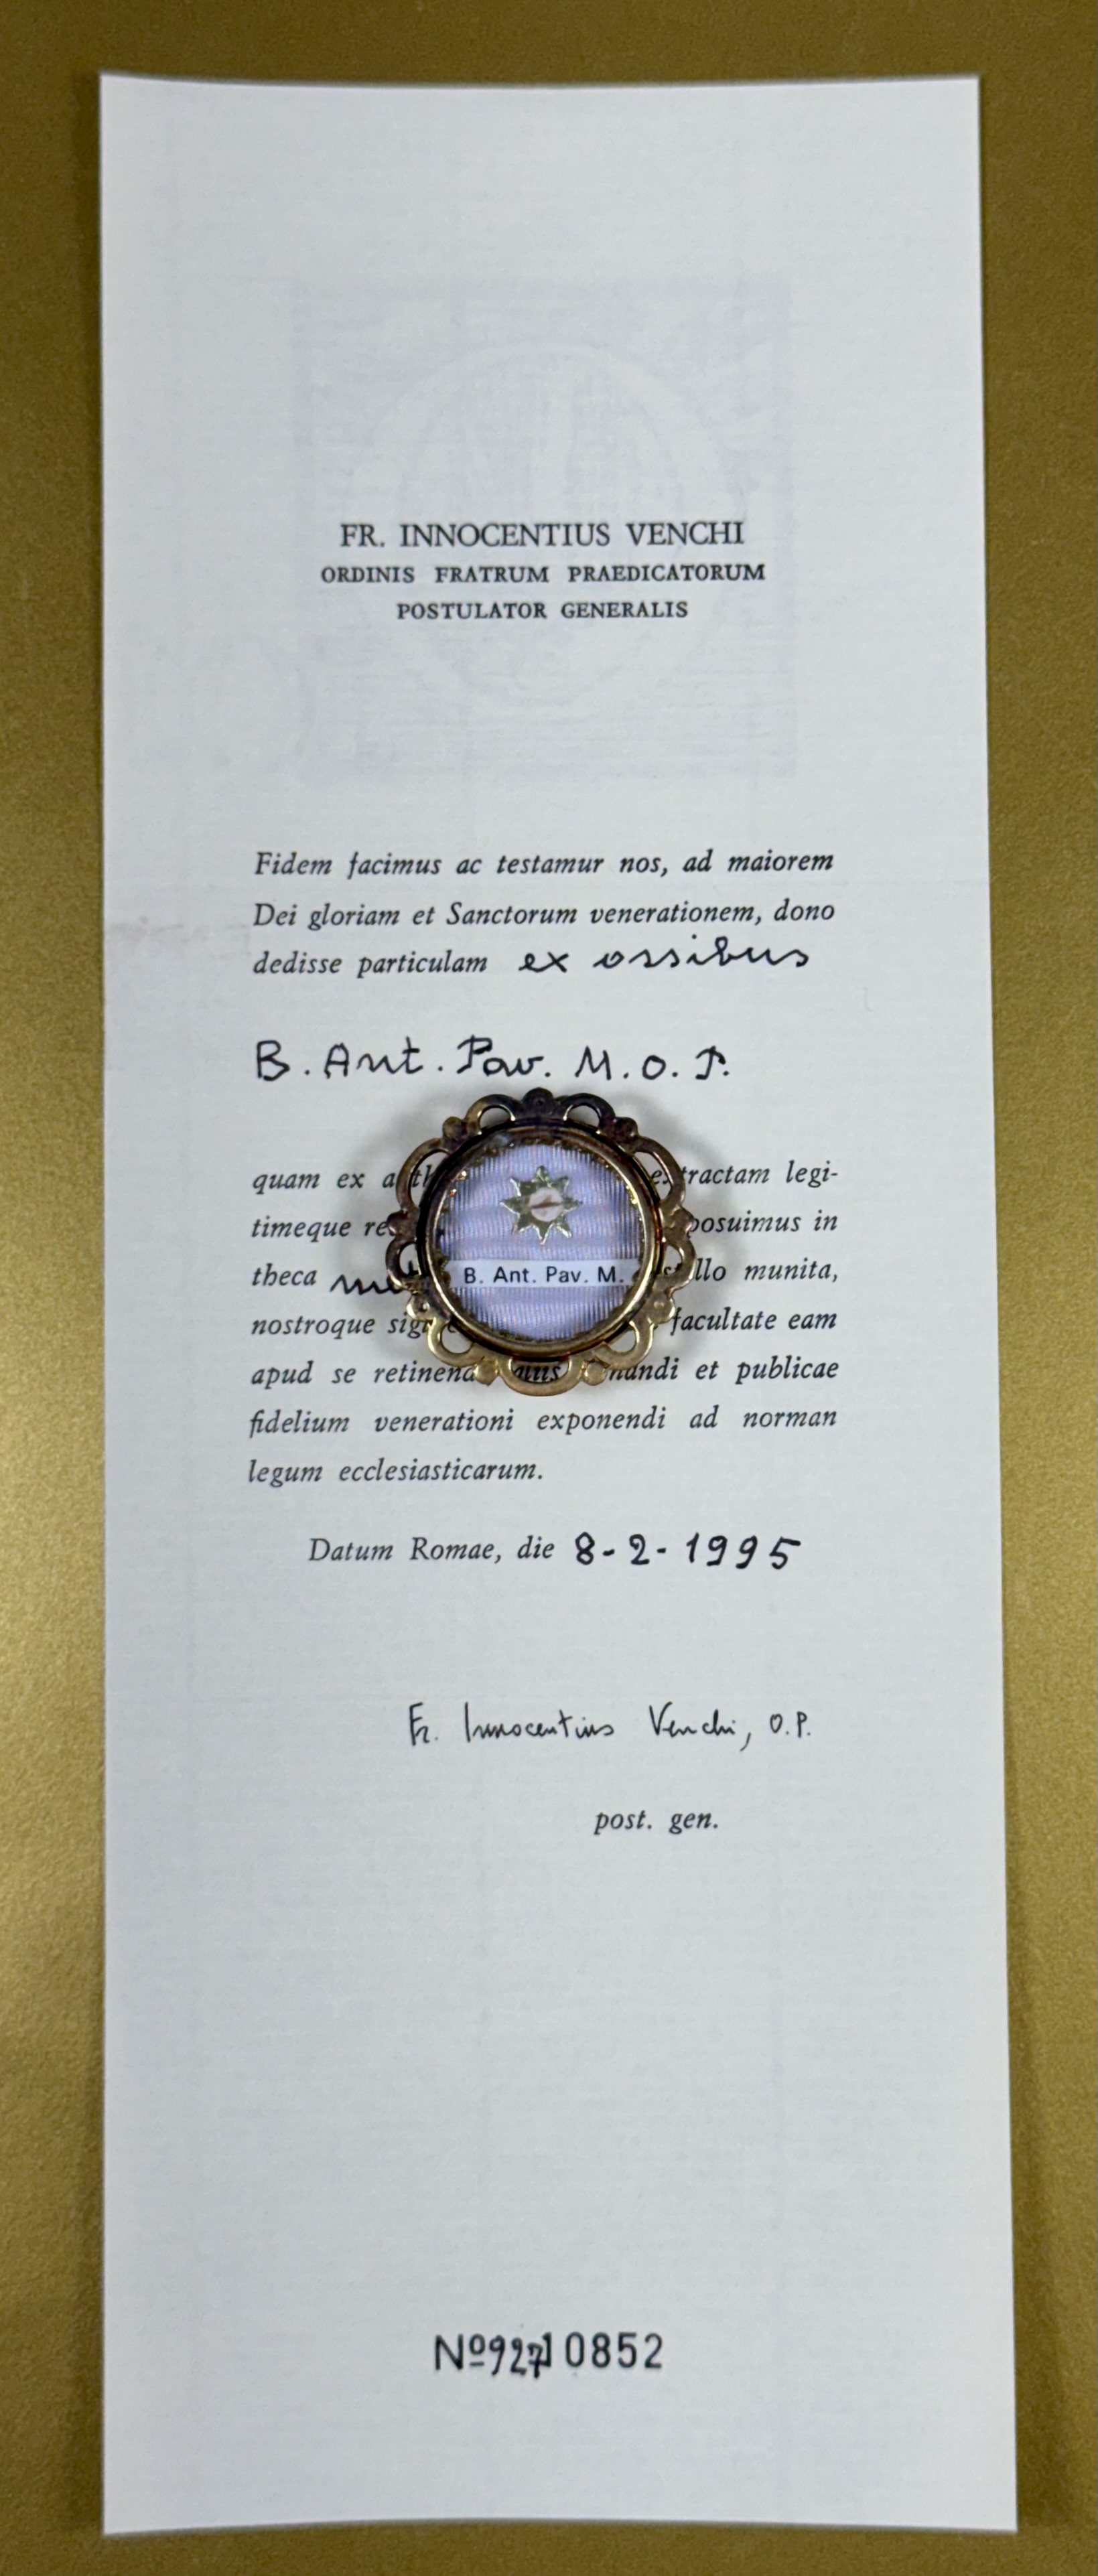 FR. INNOCENTIUS VENCHI
ORDINIS FRATRUM PRAEDICATORUM
POSTULATOR GENERALIS
Fidem facimus ac testamur nos, ad maiorem
Dei gloriam et Sanctorum venerationem, dono
dedisse particulam ex ossibus
B. Ant. Pav. M. O. P.
quam ex legi-
timeque in
theca B. Ant. Pav. M. munita,
nostroque facultate eam
apud se et publicae
fidelium venerationi exponendi ad norman
legum ecclesiasticarum.
Datum Romae, die 8-2-1995
Fr. Innocentius Venchi, O.P.
post. gen.
Nº 0852